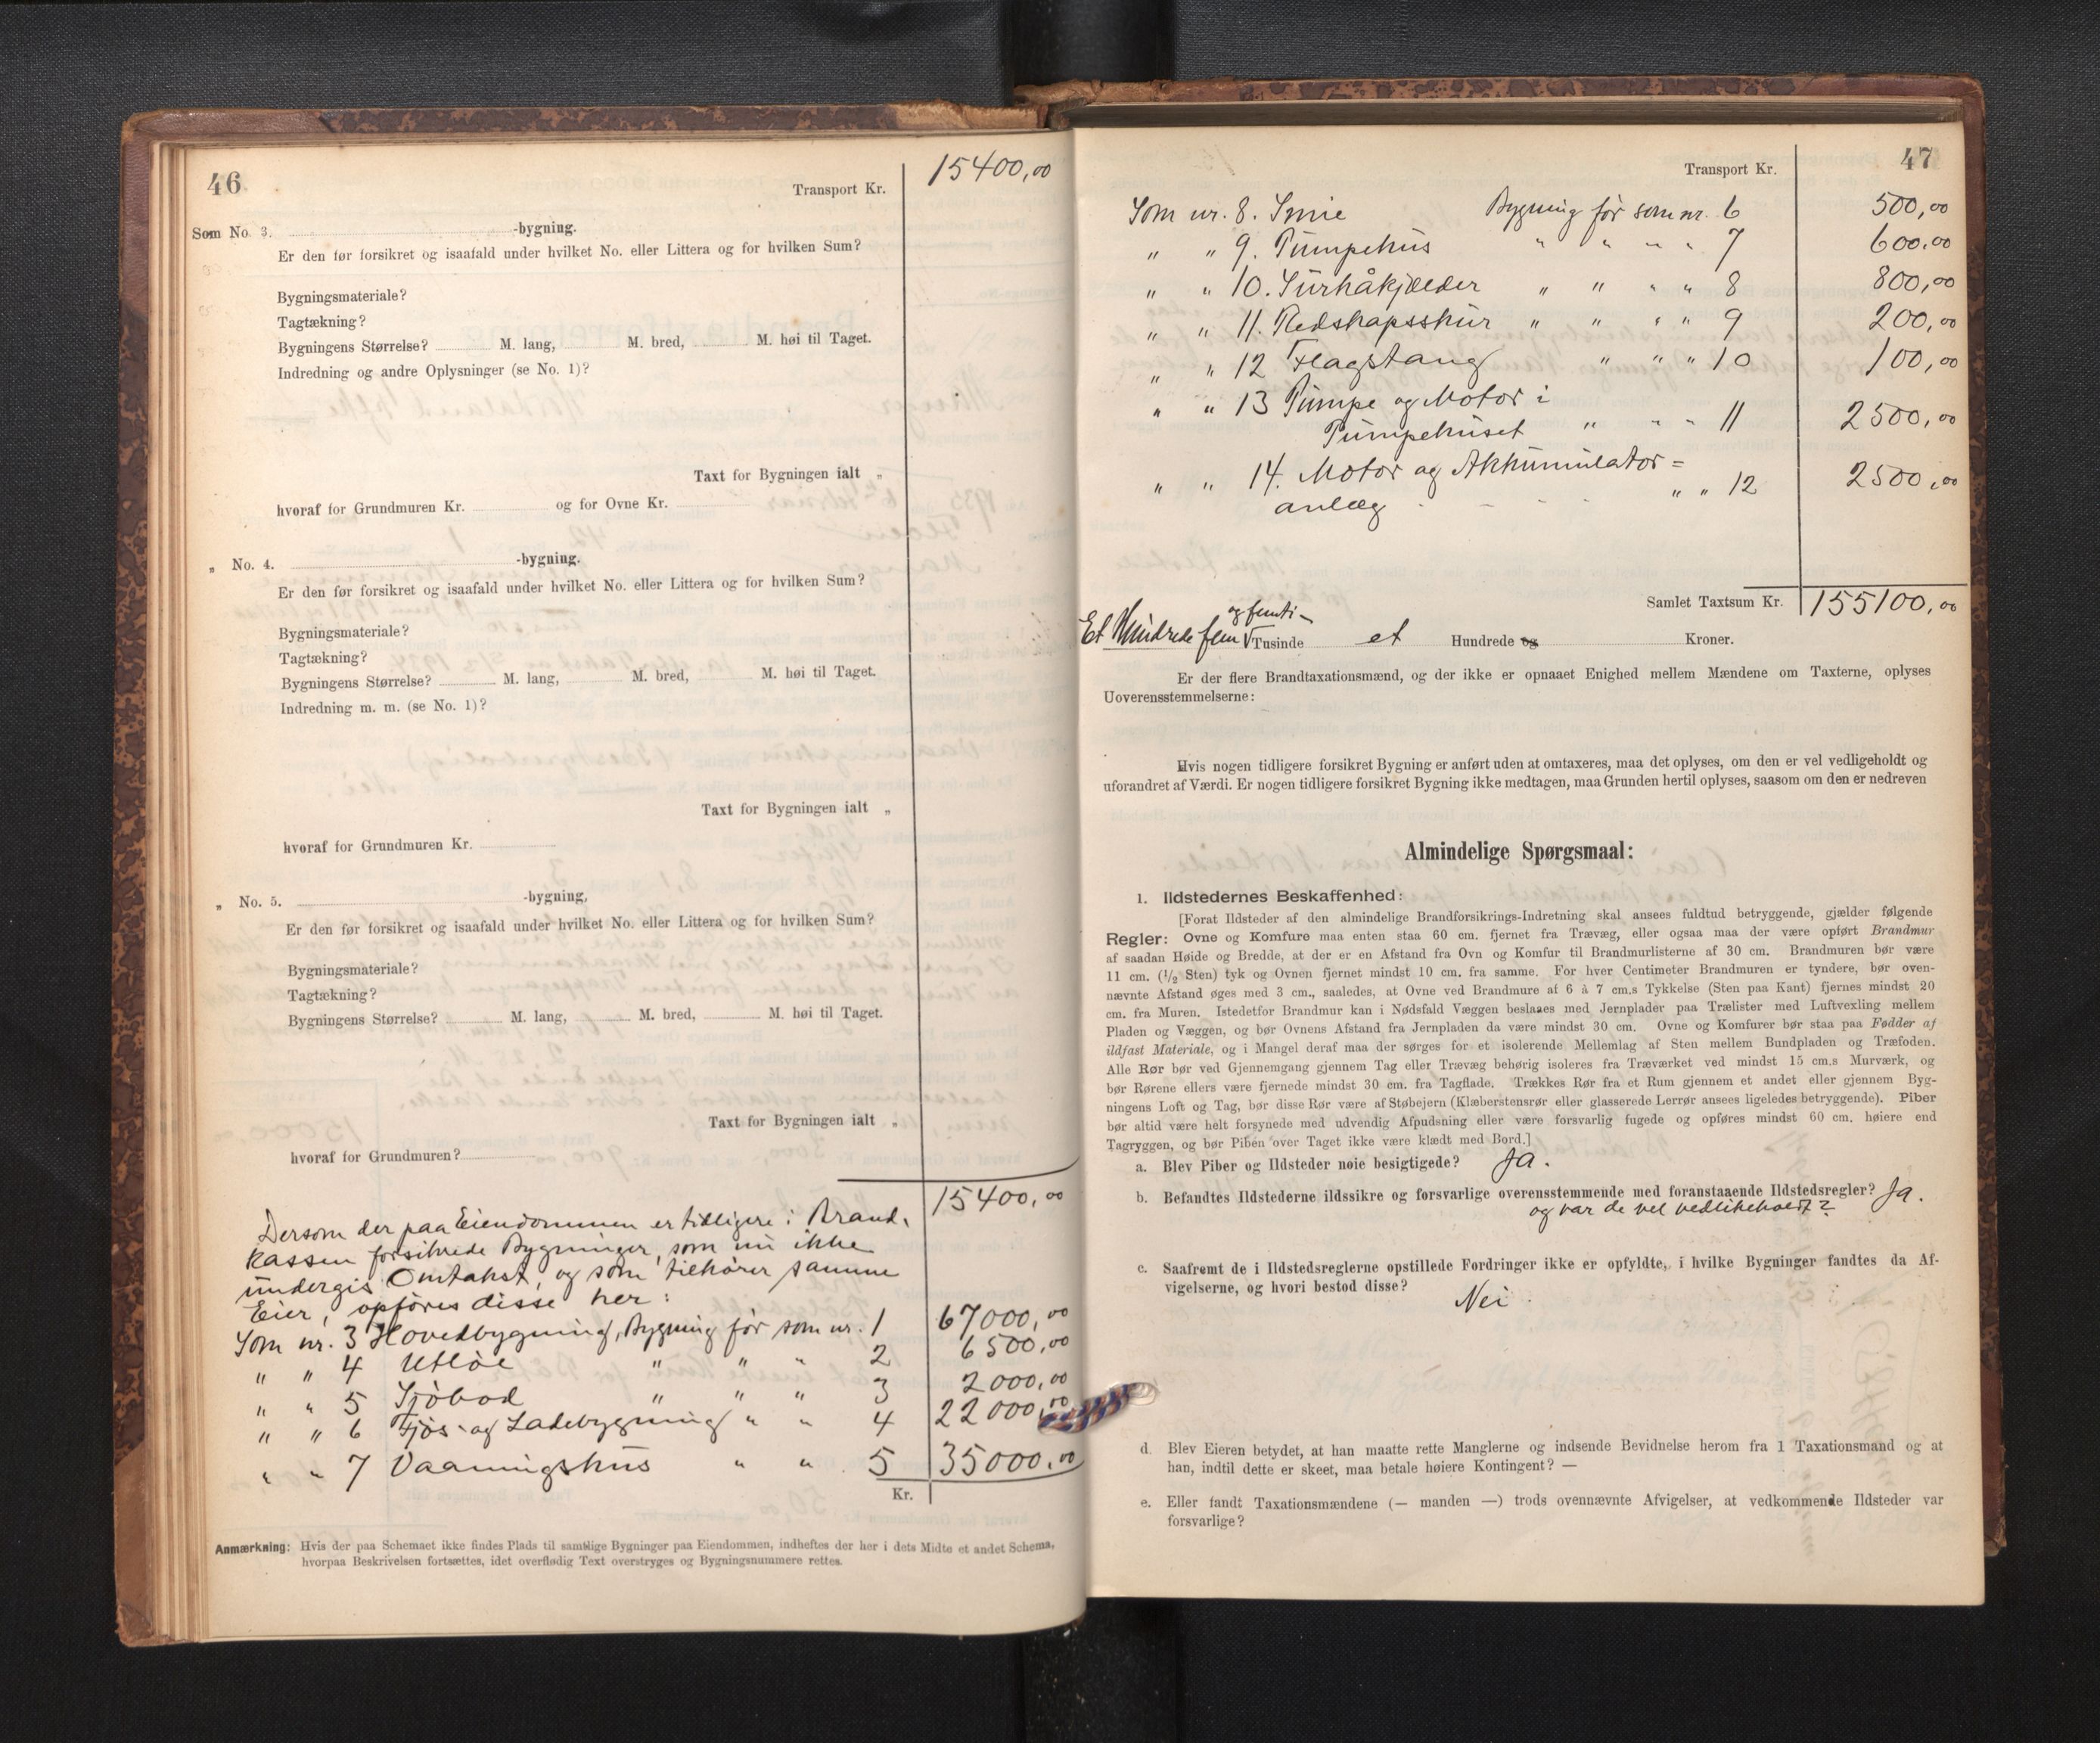 46
Transport Kr. 15400,00
Som No. 3. -bygning.
Er den før forsikret og isaafald under hvilket No. eller Littera og for hvilken Sum?
Bygningsmateriale?
Tagtækning?
Bygningens Størrelse? M. lang, M. bred, M. høi til Taget.
Indredning og andre Oplysninger (se No. 1)?
Taxt for Bygningen ialt „
hvoraf for Grundmuren Kr. og for Ovne Kr.
„ No. 4. -bygning.
Er den før forsikret og isaafald under hvilket No. eller Littera og for hvilken Sum?
Bygningsmateriale?
Tagtækning?
Bygningens Størrelse? M. lang, M. bred, M. høi til Taget.
Indredning m. m. (se No. 1)?
Taxt for Bygningen ialt „
hvoraf for Grundmuren Kr.
„ No. 5. -bygning,
Er den før forsikret og isaafald under hvilket No. eller Littera og for hvilken Sum?
Bygningsmateriale?
Tagtækning?
Bygningens Størrelse? M. lang, M. bred, M. høi til Taget.
Taxt for Bygningen ialt „
hvoraf for Grundmuren?
15400,00
Dersom der paa Eiendommen er tidligere i Brand-
kassen forsikrede Bygninger, som nu ikke
undergis Omtakst, og som tilhører samme
Eier, opføres disse her:
Som nr. 3 Hovedbygning, Bygning før som nr. 1 67000,00
„ „ 4 Utløe „ „ „ 2 6500,00
„ „ 5 Sjøbod „ „ „ 3 2000,00
„ „ 6 Fjøs- og Ladebygning „ „ 4 22000,00
„ „ 7 Vaaningshus „ „ 5 35000,00
Kr.
Anmærkning: Hvis der paa Schemaet ikke findes Plads til samtlige Bygninger paa Eiendommen, indheftes der her i dets Midte et andet Schema,
hvorpaa Beskrivelsen fortsættes, idet overflødig Text overstryges og Bygningsnummere rettes.
47
Transport Kr.
Som nr. 8. Smie Bygning før som nr. 6 500,00
„ „ 9. Pumpehus „ „ „ „ 7 600,00
„ „ 10. Surhåkjelder „ „ „ „ 8 800,00
„ „ 11. Redskapsskur „ „ „ „ 9 200,00
„ „ 12 Flagstang „ „ „ 10 100,00
„ „ 13 Pumpe og Motor i
Pumpehuset „ „ „ 11 2500,00
„ „ 14. Motor og Akkumulator=
anlæg - - - „ „ 12 2500,00
Samlet Taxtsum Kr. 155100,00
og femti-
Et Hundrede fem √ Tusinde et Hundrede og Kroner.
Er der flere Brandtaxationsmænd, og der ikke er opnaaet Enighed mellem Mændene om Taxterne, oplyses
Uoverensstemmelserne:
Hvis nogen tidligere forsikret Bygning er anført uden at omtaxeres, maa det oplyses, om den er vel vedligeholdt og
uforandret af Værdi. Er nogen tidligere forsikret Bygning ikke medtagen, maa Grunden hertil oplyses, saasom om den er nedreven
Almindelige Spørgsmaal:
1. Ildstedernes Beskaffenhed:
[Forat Ildsteder af den almindelige Brandforsikrings-Indretning skal ansees fuldtud betryggende, gjælder følgende
Regler: Ovne og Komfure maa enten staa 60 cm. fjernet fra Trævæg, eller ogsaa maa der være opført Brandmur
af saadan Høide og Bredde, at der er en Afstand fra Ovn og Komfur til Brandmurlisterne af 30 cm. Brandmuren bør være
11 cm. (1/2 Sten) tyk og Ovnen fjernet mindst 10 cm. fra samme. For hver Centimeter Brandmuren er tyndere, bør oven-
nævnte Afstand øges med 3 cm., saaledes, at Ovne ved Brandmure af 6 à 7 cm.s Tykkelse (Sten paa Kant) fjernes mindst 20
cm. fra Muren. Istedetfor Brandmur kan i Nødsfald Væggen beslaaes med Jernplader paa Trælister med Luftvexling mellem
Pladen og Væggen, og bør Ovnens Afstand fra Jernpladen da være mindst 30 cm. Ovne og Komfurer bør staa paa Fødder af
ildfast Materiale, og i Mangel deraf maa der sørges for et isolerende Mellemlag af Sten mellem Bundpladen og Træfoden.
Alle Rør bør ved Gjennemgang gjennem Tag eller Trævæg behørig isoleres fra Træværket ved mindst 15 cm.s Murværk, og
bør Rørene ellers være fjernede mindst 30 cm. fra Tagflade. Trækkes Rør fra et Rum gjennem et andet eller gjennem Byg-
ningens Loft og Tag, bør disse Rør være af Støbejern (Klæberstensrør eller glasserede Lerrør ansees ligeledes betryggende). Piber
bør altid være helt forsynede med udvendig Afpudsning eller være forsvarlig fugede og opføres mindst 60 cm. høiere end
Tagryggen, og bør Piben over Taget ikke være klædt med Bord.]
a. Blev Piber og Ildsteder nøie besigtigede? Ja.
b. Befandtes Ildstederne ildssikre og forsvarlige overensstemmende med foranstaaende Ildstedsregler? Ja.
og var de vel vedlikeholdt?
c. Saafremt de i Ildstedsreglerne opstillede Fordringer ikke er opfyldte, i hvilke Bygninger fandtes da Af-
vigelserne, og hvori bestod disse?
Nei
d. Blev Eieren betydet, at han maatte rette Manglerne og indsende Bevidnelse herom fra 1 Taxationsmand og at
han, indtil dette er skeet, maa betale høiere Kontingent? —
e. Eller fandt Taxationsmændene (— manden —) trods ovennævnte Afvigelser, at vedkommende Ildsteder var
forsvarlige?